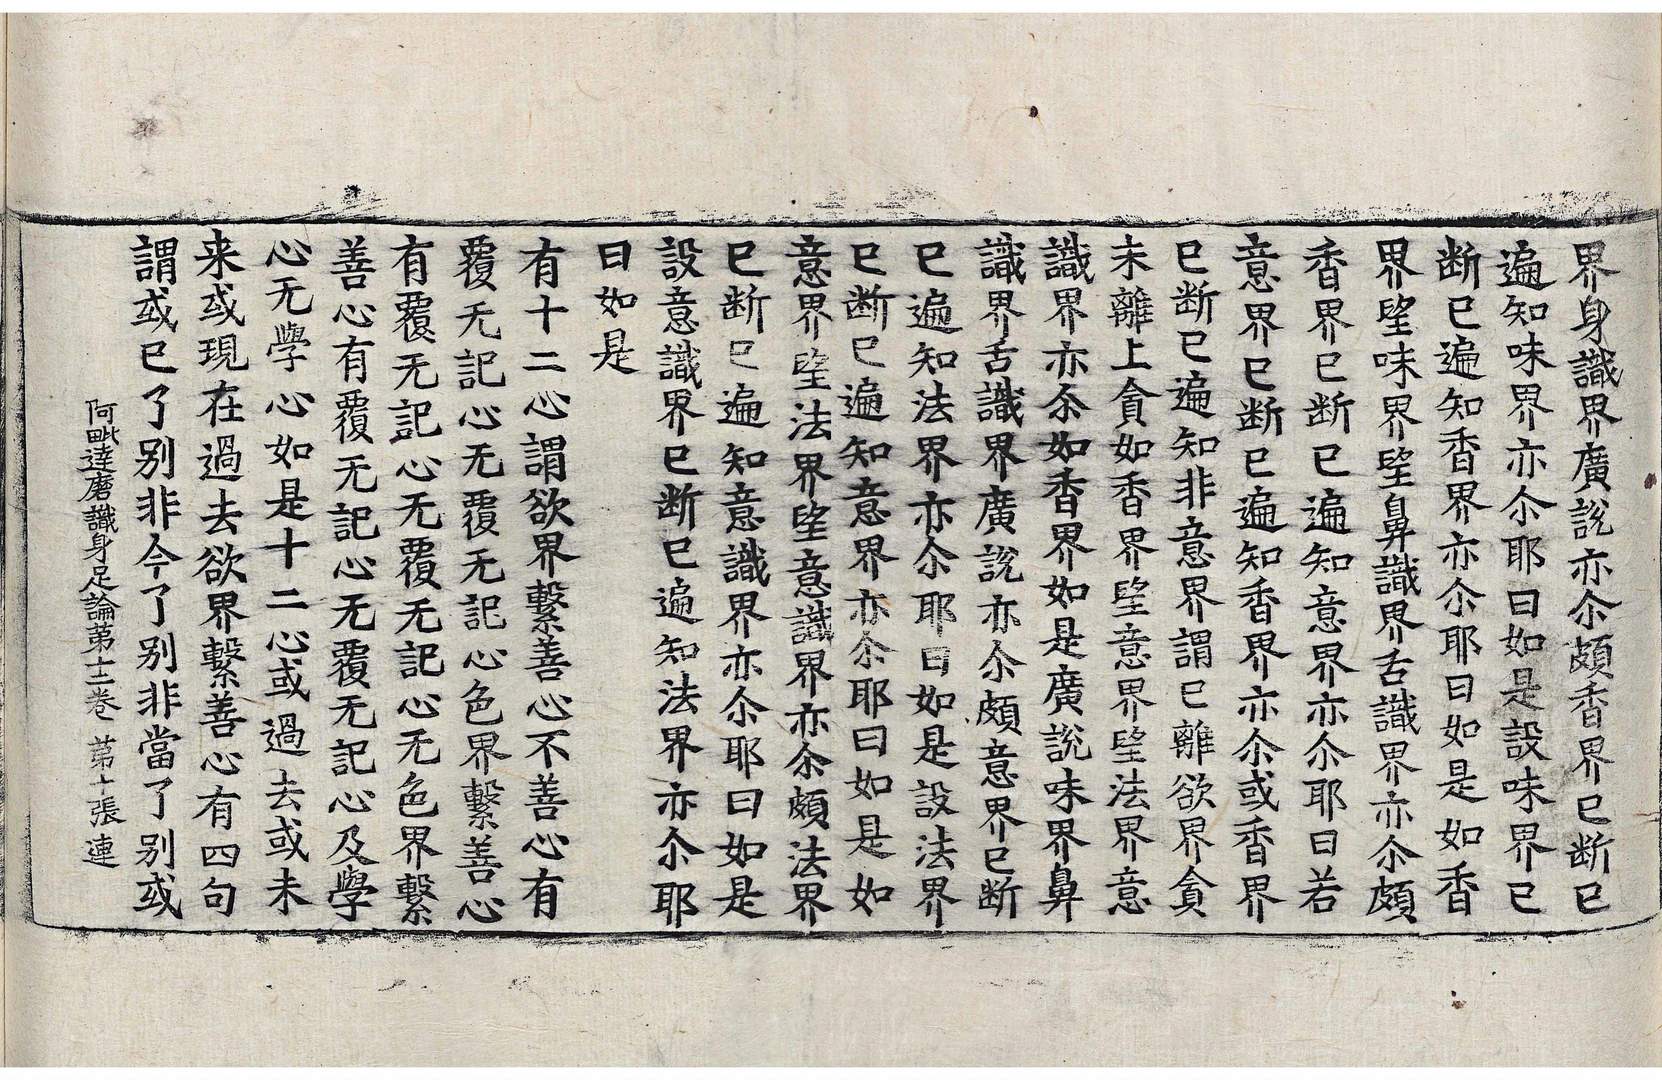 界身識界廣說亦尒頗香界已断已
遍知味界亦尒耶曰如是設味界已
断已遍知香界亦尒耶曰如是如香
界望味界望鼻識界舌識界亦尒頗
香界已断已遍知意界亦尒耶曰若
意界已断已遍知香界亦尒或香界
已断已遍知非意界謂已離欲界貪
未離上貪如香界望意界望法界意
識界亦尒如香界如是廣說味界鼻
識界舌識界廣說亦尒頗意界已断
已遍知法界亦尒耶曰如是設法界
已断已遍知意界亦尒耶曰如是如
意界望法界望意識界亦尒頗法界
已断已遍知意識界亦尒耶曰如是
設意識界已断已遍知法界亦尒耶
曰如是
有十二心謂欲界繫善心不善心有
覆无記心无覆无記心色界繫善心
有覆无記心无覆无記心无色界繫
善心有覆无記心无覆无記心及學
心无學心如是十二心或過去或未
来或現在過去欲界繫善心有四句
謂或已了别非今了别非當了别或
阿毗達磨識身足論第十二卷 第十張 連